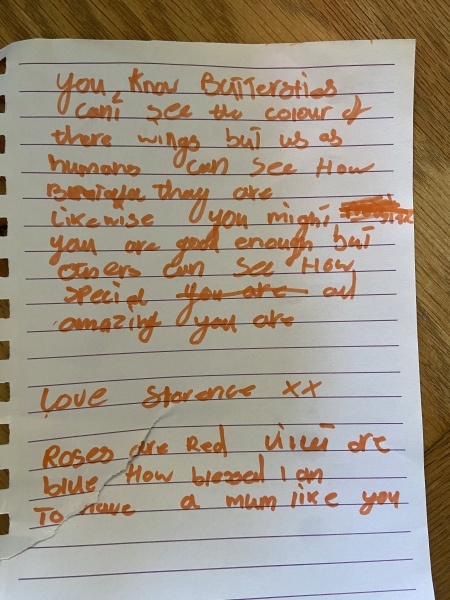 you know Butterflies
can't see the colour of
there wings but us as
humans can see How
they are
Likewise you might
you are good enough but
others can see How
special you are and
amazing you are
Love Starence xx
Roses are Red are
blue How blessed I am
To have a mum like you